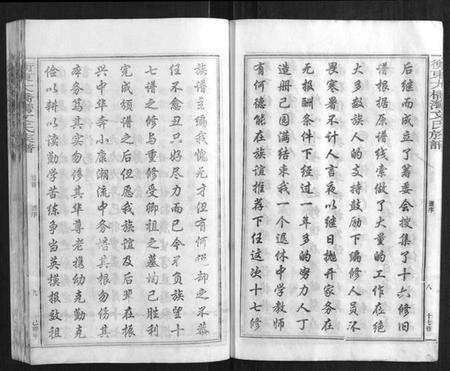 后继而成立了筹委会搜集了十六修旧
谱根据原谱线索做了大量的工作在绝
大多数族人的支持鼓励下编修人员不
畏寒暑不计人言夜以继日抛开家务在
无报酬条件下经过一年多的努力丁
造册已圆满结束我一个退休中学教师
有何德能在族谊推荐下任这次十七修
族谱主编我愧无才但有何怨却之不恭
任不愈丑只好尽力而已令不负族望十
七谱之修与重修受卿祖之墓均已胜利
完成颂谱之后但愿我族谊及后辈在振
兴中华奔小康潮流中务惜其根勿修其
瘁务笃其实勿修其华尊老携幼克勤克
俭以耕以读勤学苦练争当英模报效祖
衡东大桥湾文氏族谱
谱序
八
十七修
九